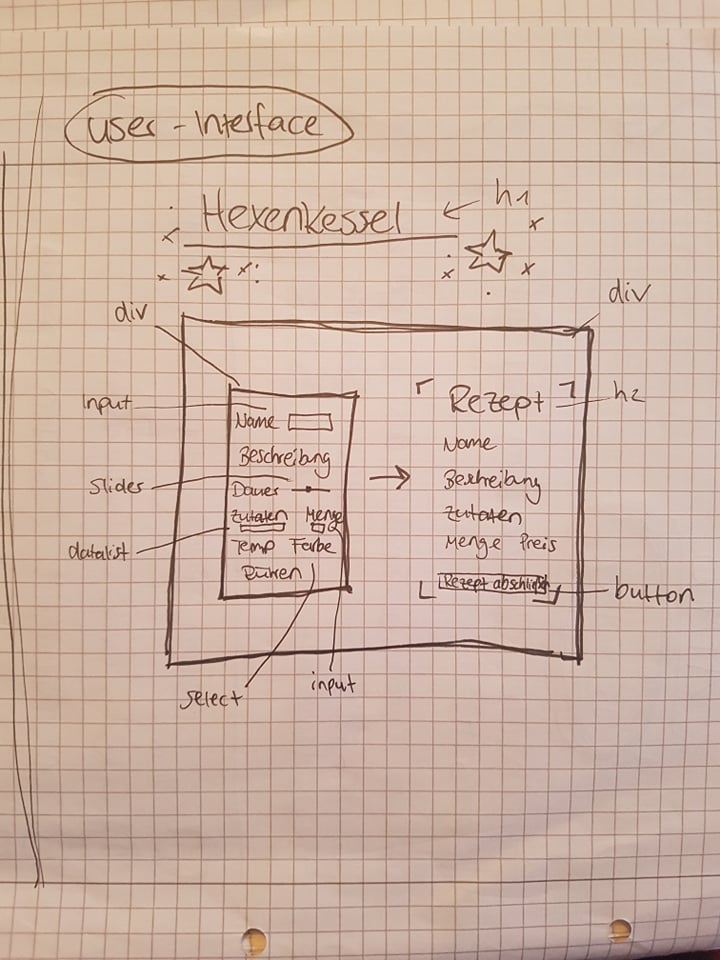 User - Interface
Hexenkessel
h1
div
div
Input
Name
Beschreibung
Slider
Dauer
Zutaten Menge
datalist
Temp Farbe
Rühren
select
input
Rezept
h2
Name
Beschreibung
Zutaten
Menge Preis
Rezept abschließen
button